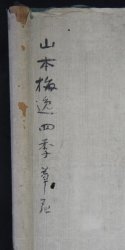 山本梅逸四季草花